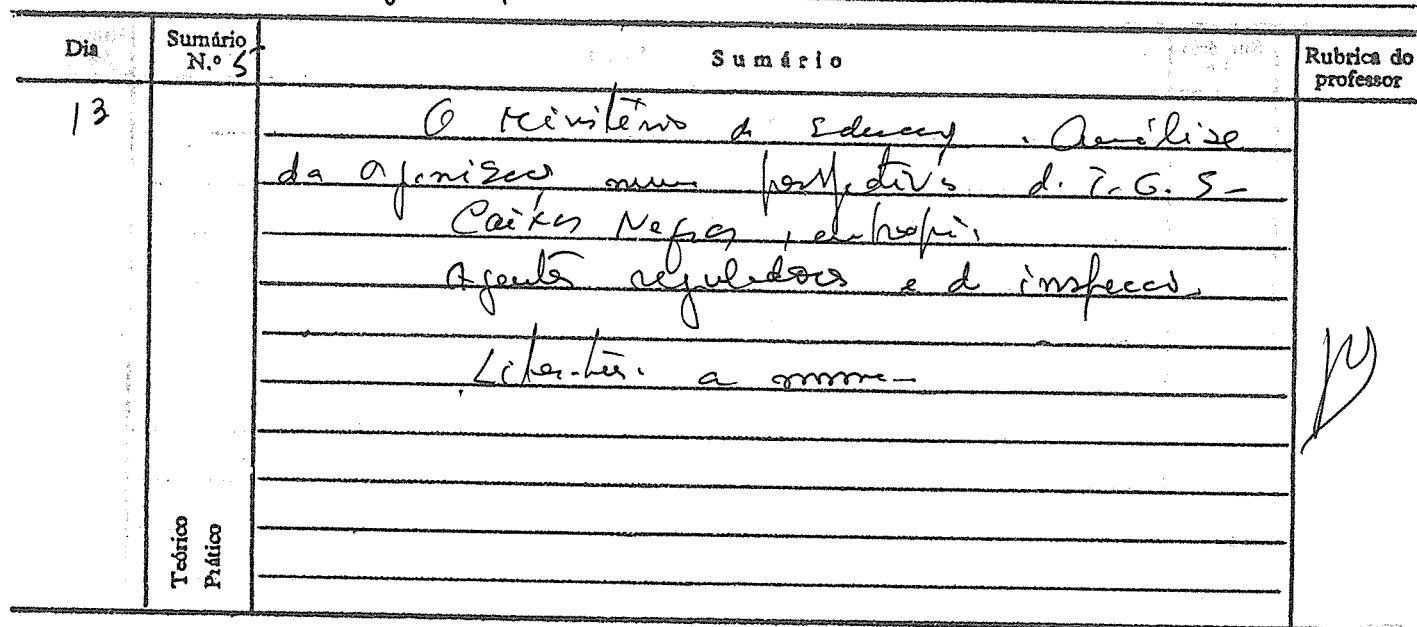 Dia
Sumário N.º 5
Sumário
Rubrica do professor
13
O Ministério da Educação. Análise
da organização numa perspectiva da T.G.S-
Caixas Negras, entropia
Agentes reguladores e de inspecção
a
Teórico
Prático